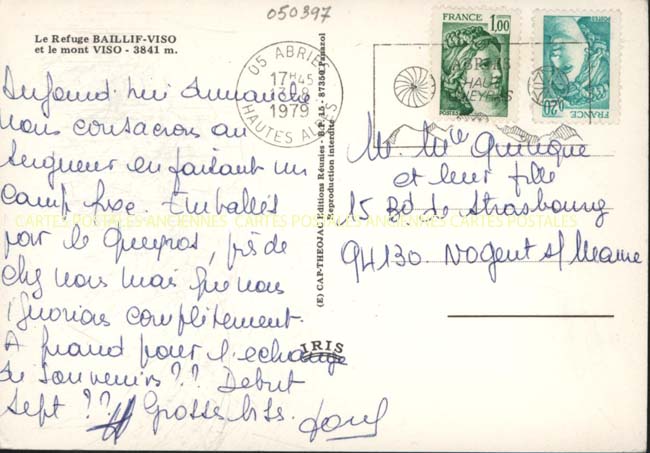 050397
Le Refuge BAILLIF-VISO
et le mont VISO - 3841 m.
05 ABRIES
17H45
1979
HAUTES ALPES
FRANCE
1,00
POSTES
ABRIES
HAUT
QUEYRAS
0,20
FRANCE
Aujourd'hui dimanche
nous consacrons au
Seigneur en faisant un
camp fixe. Emballés
par le Queyras, près de
chez nous mais que nous
ignorions complètement.
A quand pour l'échange
de souvenirs ?? Début
Sept ?? Grosses bises.
(E) CAP-THEOJAC Editions Réunies - B.P. 15 - 87350 Panazol
Reproduction interdite
IRIS
M. Mme
et leur fille
15 Bd de Strasbourg
94130 Nogent s/ Marne
CARTES POSTALES ANCIENNES CARTES POSTALES ANCIENNES CARTES POSTALES